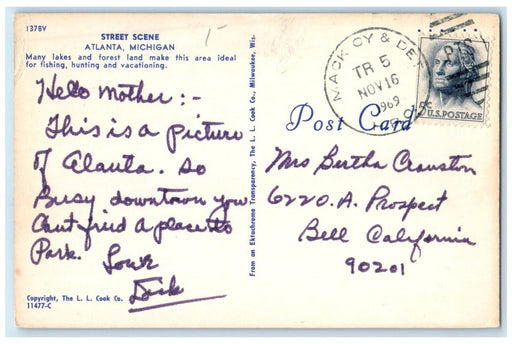 137BV
STREET SCENE
ATLANTA, MICHIGAN
Many lakes and forest land make this area ideal
for fishing, hunting and vacationing.
Hello Mother:-
This is a picture
of Alanta. So
Busy downtown you
Cant find a place to
Park.
Love
Dick
Copyright, The L. L. Cook Co.
11477-C
From an Ektachrome Transparency, The L. L. Cook Co., Milwaukee, Wis.
MACK CY & DET
TR 5
NOV 16
1969
R.P.O.
5c
U.S. POSTAGE
Post Card
Mrs Bertha Cranston
6220.A. Prospect
Bell California
90201